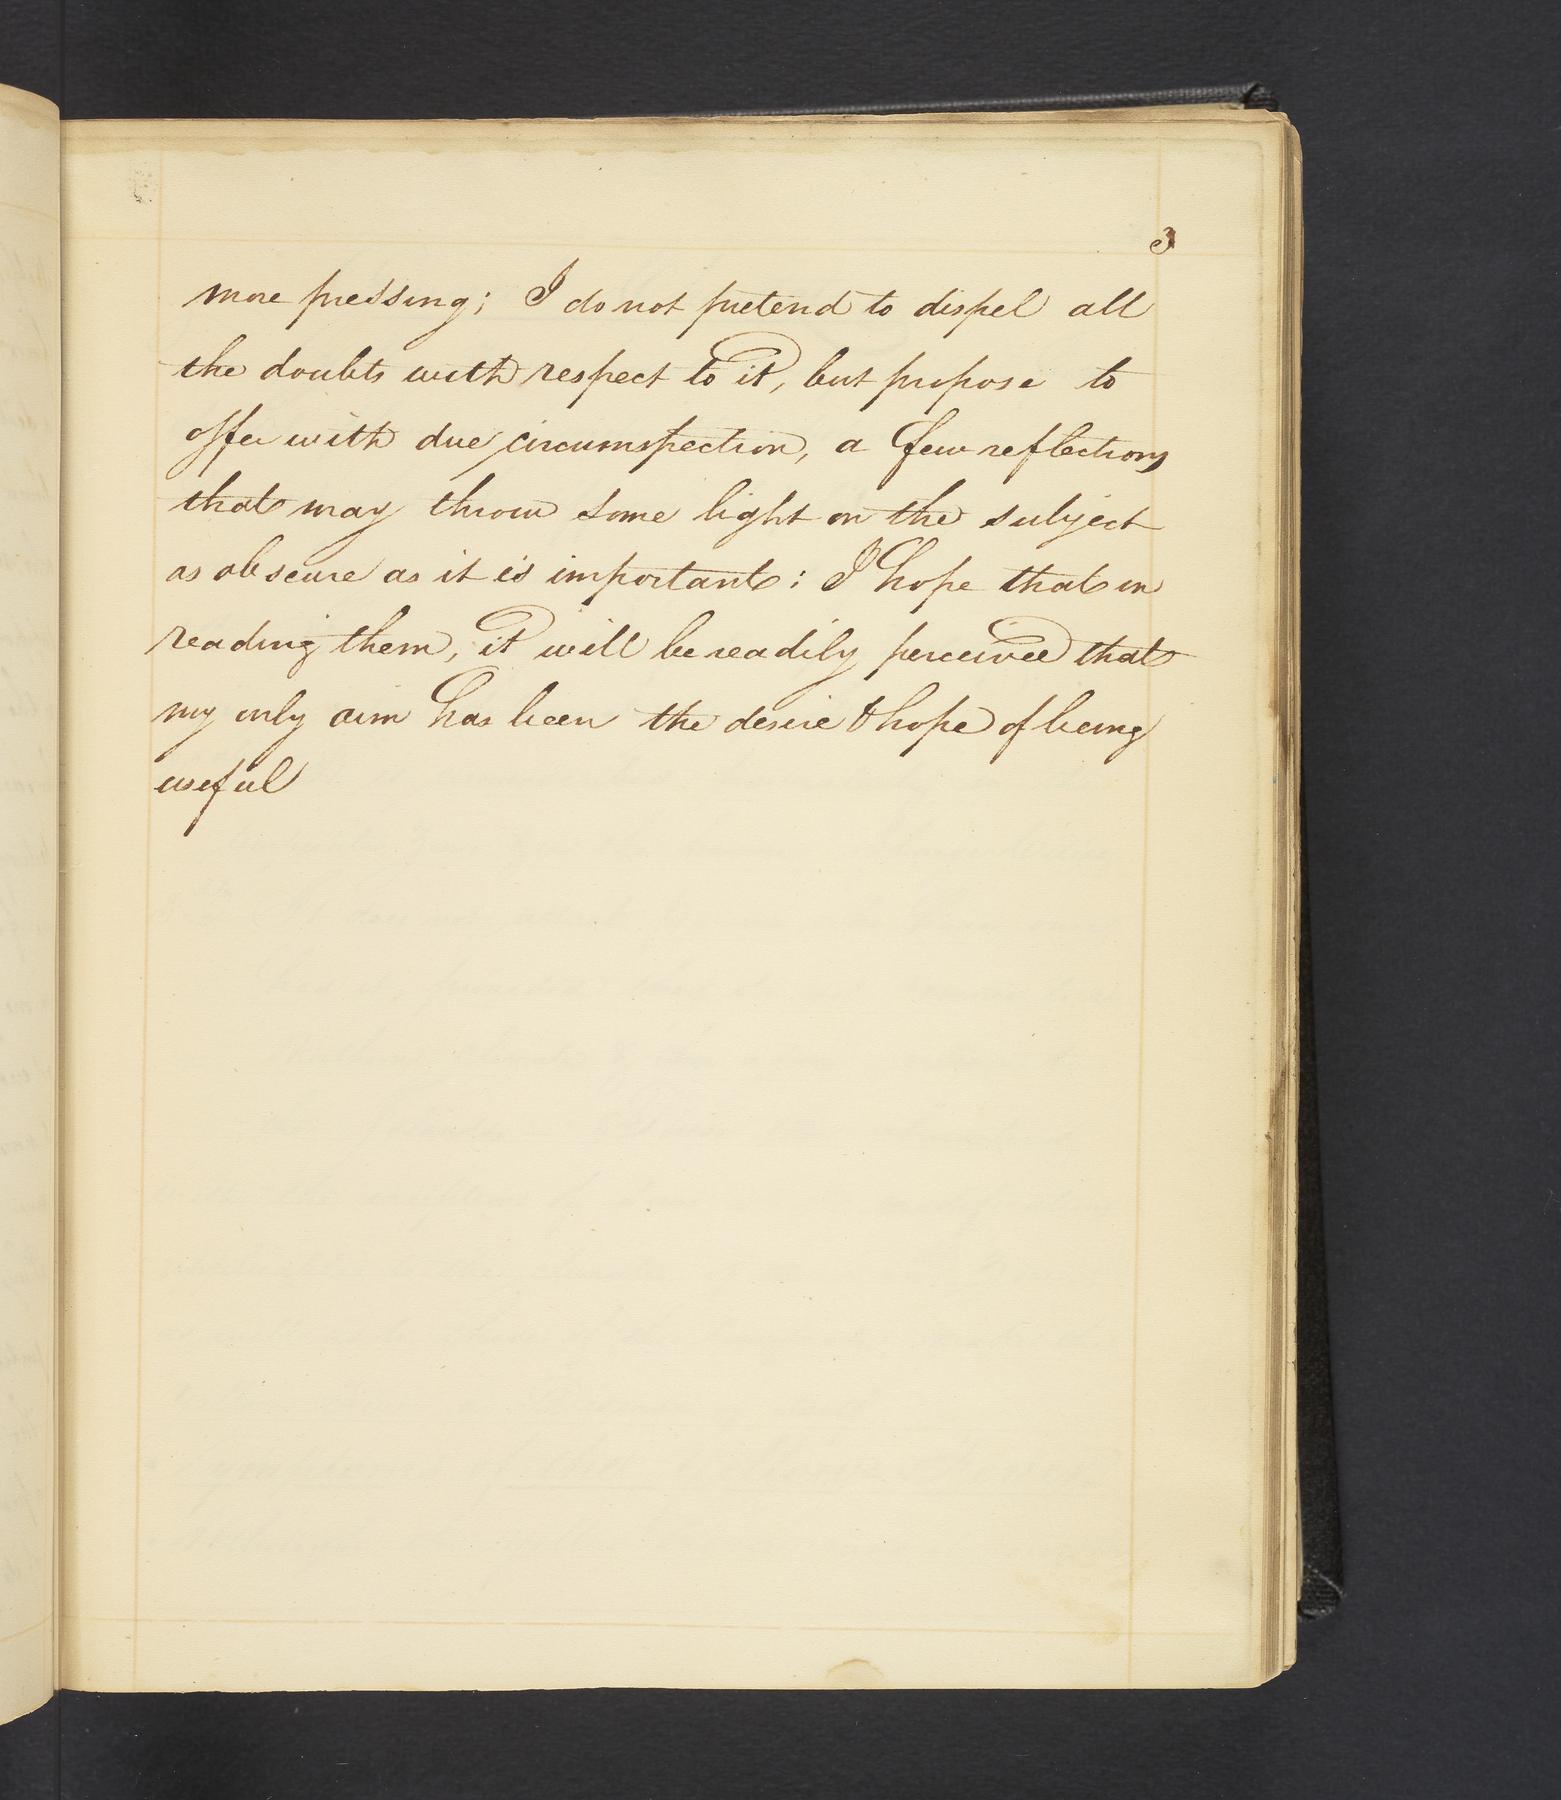 3
more pressing; I do not pretend to dispel all
the doubts with respect to it, but propose to
offer with due circumspection, a few reflections
that may throw some light on the subject
as obscure as it is important: I hope that in
reading them, it will be readily perceived that
my only aim has been the desire & hope of being
useful